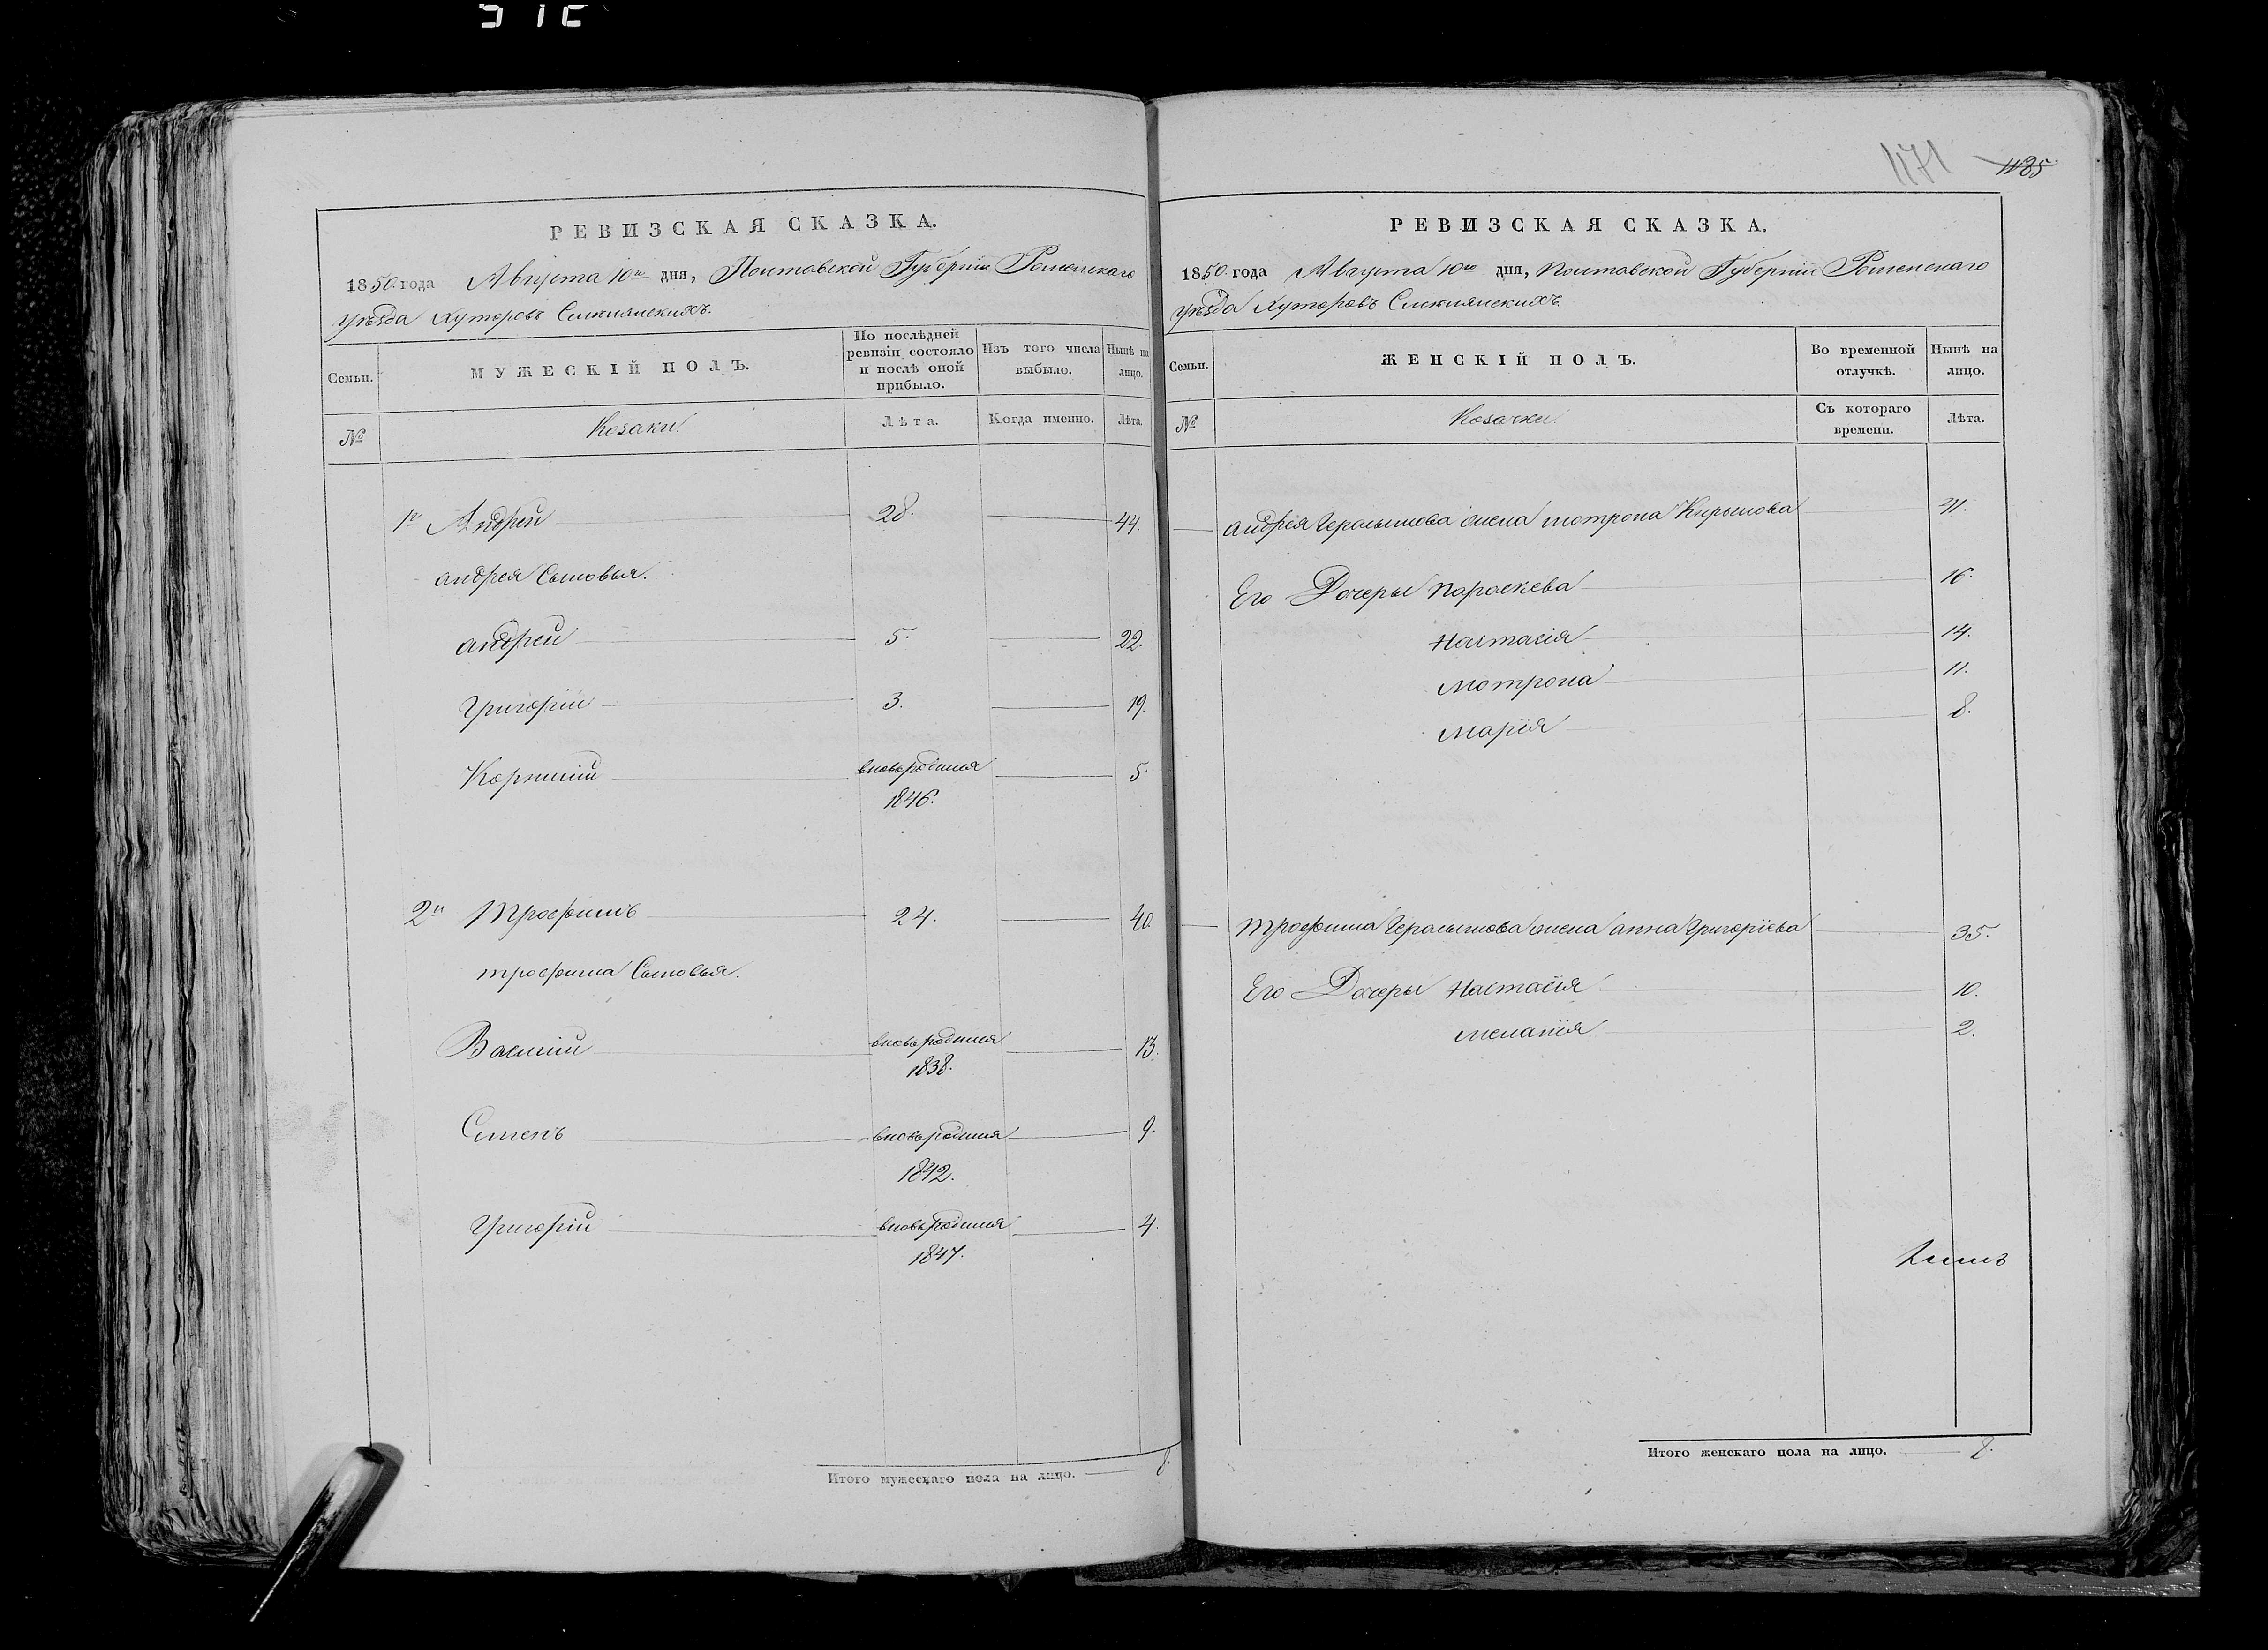 1171 1185
РЕВИЗСКАЯ СКАЗКА.
1850 года Августа 10го дня, Полтавской Губерніи Роменскаго
уѣзда Хуторовъ
Семьи.
МУЖЕСКІЙ ПОЛЪ.
По послѣдней ревизіи состояло и послѣ оной прибыло.
Изъ того числа выбыло.
Нынѣ на лицо.
№
Козаки.
Лѣта.
Когда именно.
Лѣта.
1й Андрей 28. 44.
Андрея Сыновья.
Андрей 5. 22.
Григорій 3. 19.
Корнилій вновьродился 5.
1846.
2й Трофимъ 24. 40.
Трофима Сыновья.
Василій вновьродился 13.
1838.
Семенъ вновьродился 9.
1842.
Григорій вновьродился 4.
1847.
Итого мужескаго пола на лицо. 8.
РЕВИЗСКАЯ СКАЗКА.
1850 года Августа 10го дня, Полтавской Губерніи Роменскаго
уѣзда Хуторовъ
Семьи.
ЖЕНСКІЙ ПОЛЪ.
Во временной отлучкѣ.
Нынѣ на лицо.
№
Козачки.
Съ котораго времени.
Лѣта.
Андрея Герасымова жена Мотрона Кирылова 41.
Его Дочеры Параскева 16.
Настасія 14.
Мотрона 11.
Марія 8.
Трофима Герасымова жена Анна Григоріева 35.
Его Дочеры Настасія 10.
Меланія 2.
Итого женскаго пола на лицо. 8.